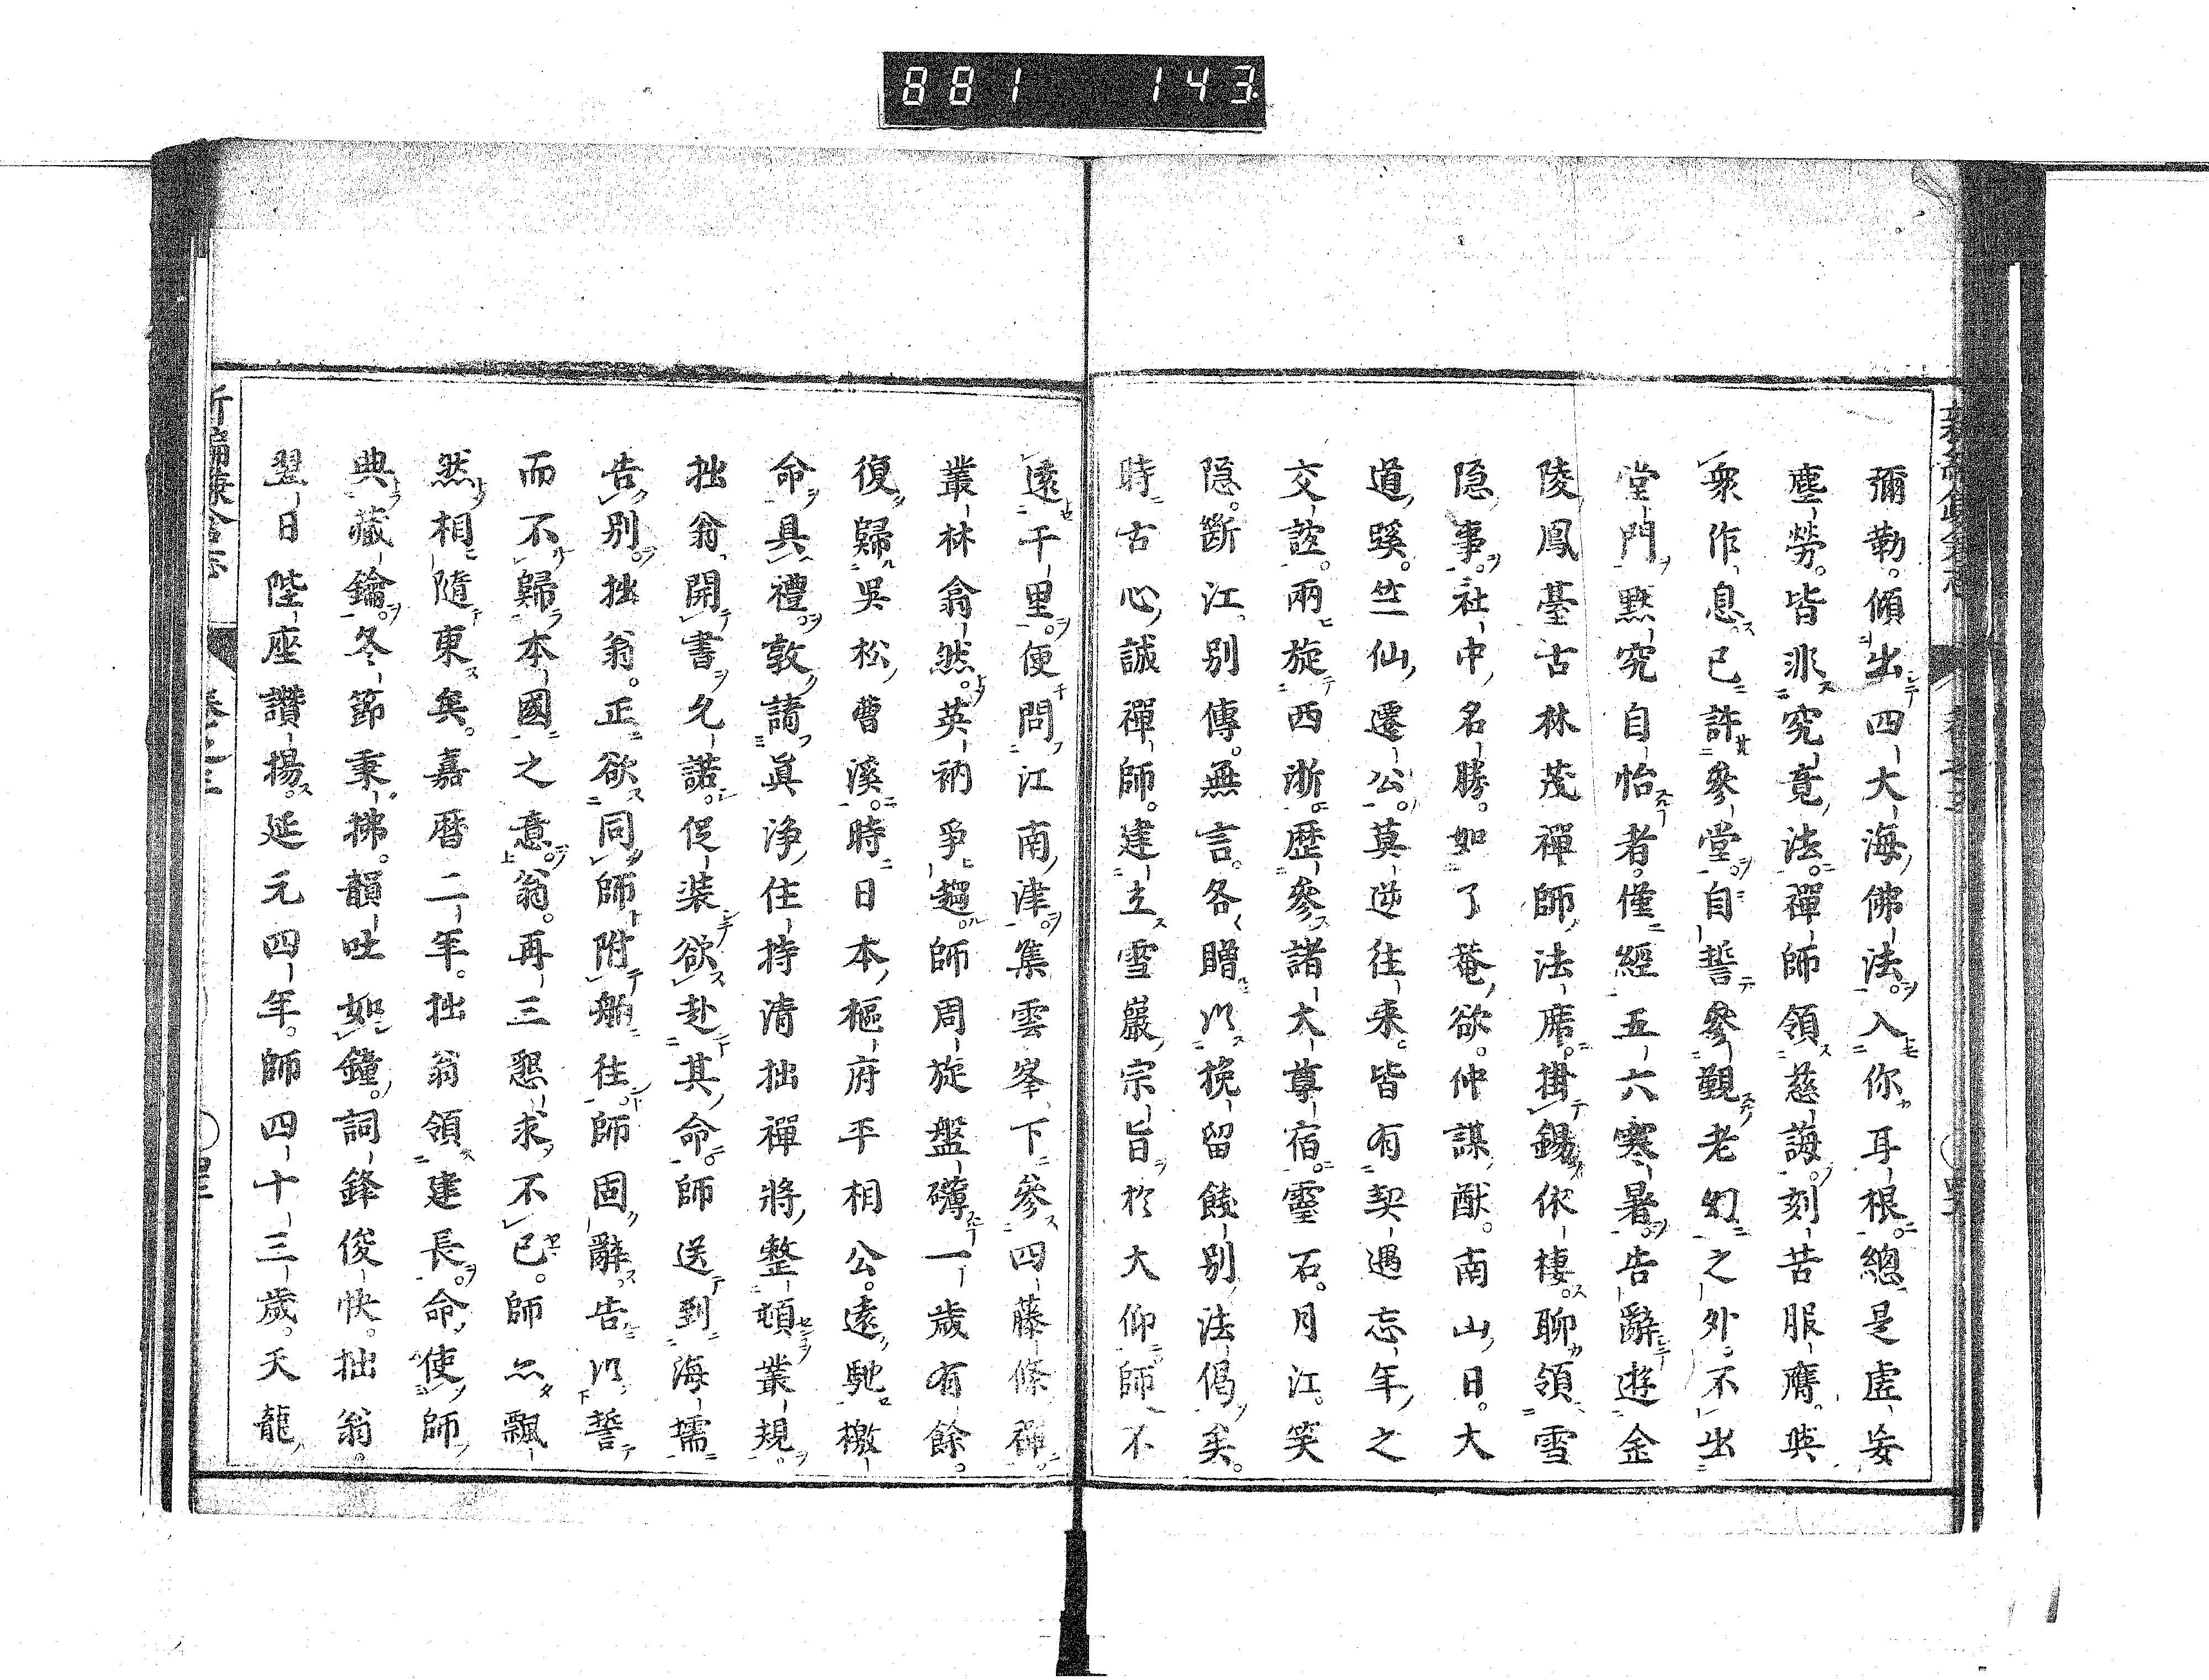 881 143
彌勒。傾出四大海佛法。入你耳根。總是虛妄
塵勞。皆非究竟法。禪師領慈誨。刻苦服膺。與
衆作息。已許參堂。自誓參覲老幻之外。不出
堂門。默究自怡者。僅經五六寒暑。告辭遊金
陵鳳臺古林茂禪師法席。掛錫依棲。聊領雪
隱事。社中名勝。如了菴欲。仲謀猷。南山日。大
道蹊。竺仙遷公。莫逆往來。皆有契遇忘年之
交誼。兩旋西浙。歷參諸大尊宿。靈石。月江。笑
隱。斷江。別傳。無言。各贈以挽留餞別法偈矣。
時古心誠禪師。建立雪巖宗旨於大仰。師不
遠千里。便問江南津。集雲峯下參四藤條禪。
叢林翕然。英衲爭趨。師周旋盤礴一歲有餘。
復歸吳松曹溪。時日本樞府平相公。遠馳檄
命。具禮敦請眞淨住持清拙禪將整頓叢規。
拙翁開書允諾。促裝欲赴其命。師送到海壖
告別。拙翁。正欲同師附舶往。師固辭。告以誓
而不歸本國之意。翁。再三懇求不已。師亦飄
然相隨東矣。嘉曆二年。拙翁領建長命使師
典藏鑰。冬節秉拂。韻吐如鐘。詞鋒俊快。拙翁。
翌日陞座讚揚。延元四年。師四十三歲。天龍